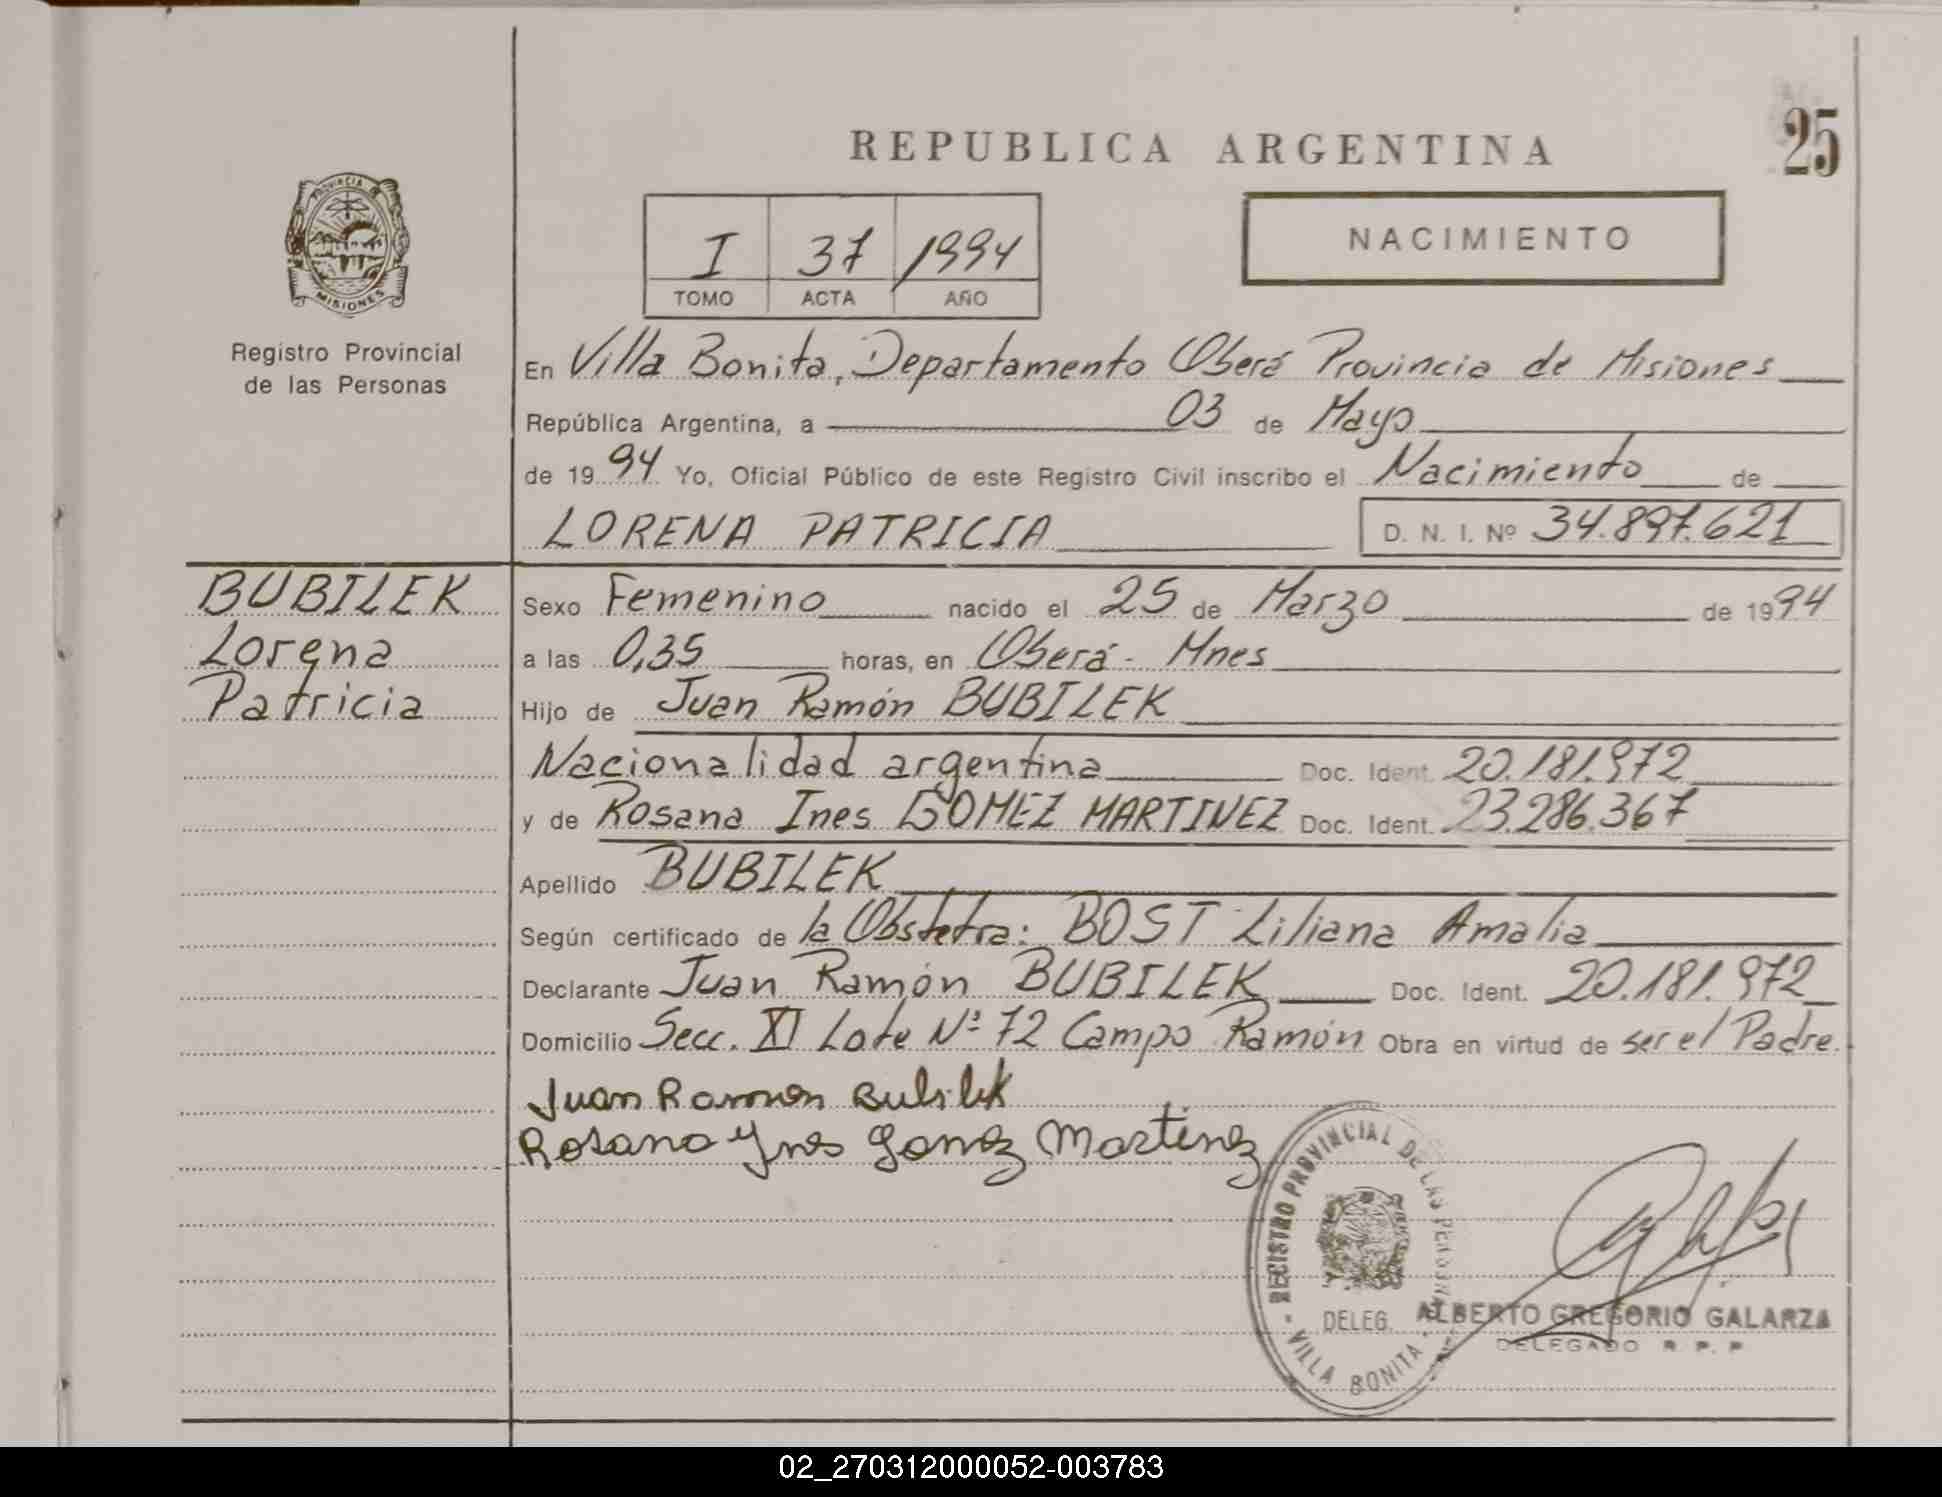 25
REPUBLICA ARGENTINA
PROVINCIA DE
MISIONES
Registro Provincial
de las Personas
I 37 1994
TOMO ACTA AÑO
NACIMIENTO
En Villa Bonita, Departamento Oberá Provincia de Misiones
República Argentina, a 03 de Mayo
de 1994 Yo, Oficial Público de este Registro Civil inscribo el Nacimiento de
LORENA PATRICIA D. N. I. Nº 34.897.621
BUBILEK
Lorena
Patricia
Sexo Femenino nacido el 25 de Marzo de 1994
a las 0,35 horas, en Oberá - Mnes
Hijo de Juan Ramón BUBILEK
Nacionalidad argentina Doc. Ident. 20.181.972
y de Rosana Ines GOMEZ MARTINEZ Doc. Ident. 23.286.367
Apellido BUBILEK
Según certificado de la Obstetra: BOST Liliana Amalia
Declarante Juan Ramón BUBILEK Doc. Ident. 20.181.972
Domicilio Secc. XI Lote Nº 72 Campo Ramón Obra en virtud de ser el Padre.
Juan Ramon Bubilek
Rosana Ynes Gomez Martinez
REGISTRO PROVINCIAL DE LAS PERSONAS
DELEG.
- VILLA BONITA -
ALBERTO GREGORIO GALARZA
DELEGADO R. P. P
02_270312000052-003783